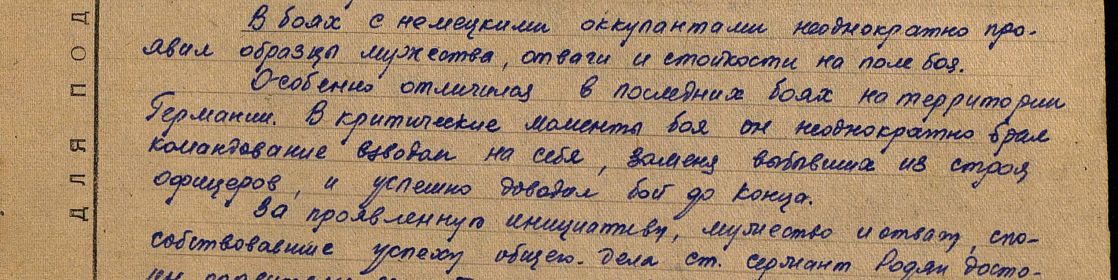 В боях с немецкими оккупантами неоднократно про-
явил образцы мужества, отваги и стойкости на поле боя.
Особенно отличился в последних боях на территории
Германии. В критические моменты боя он неоднократно брал
командование взводом на себя, заменя выбывших из строя
офицеров, и успешно доводил бой до конца.
За проявленную инициативу, мужество и отвагу, спо-
собствовавшие успеху общего дела ст. сержант Родян досто-
ДЛЯ ПОД